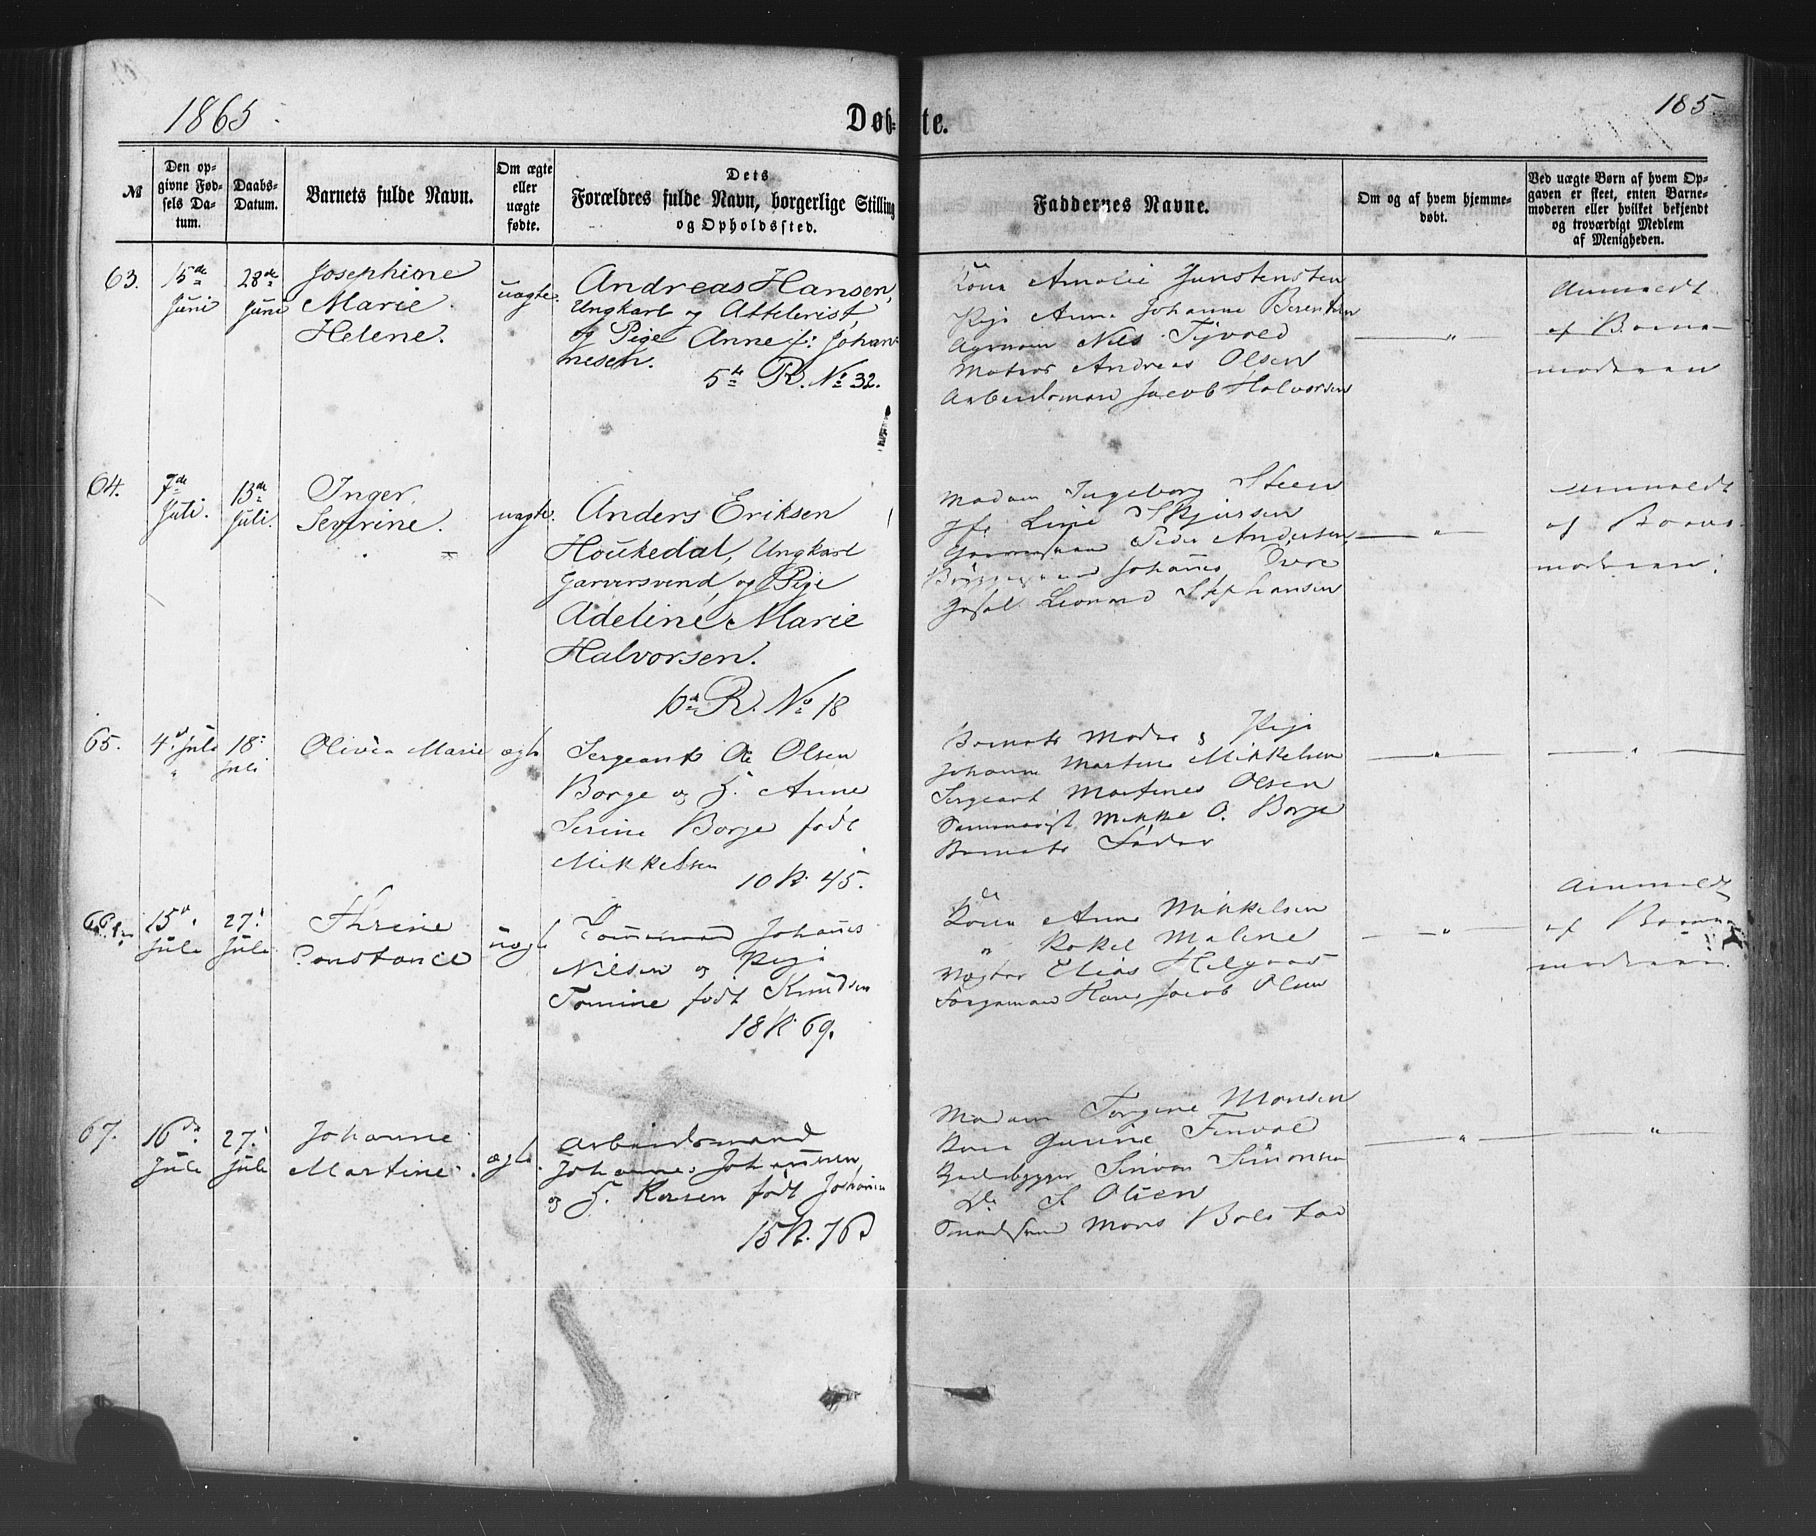 1865.
Døbte.
185.
№
Den opgivne Fødsels Datum.
Daabs-Datum.
Barnets fulde Navn.
Om ægte eller uægte fødte.
Dets Forældres fulde Navn, borgerlige Stilling og Opholdssted.
Faddernes Navne.
Om og af hvem hjemmedøbt.
Ved uægte Børn af hvem Opgaven er skeet, enten Barnemoderen eller hvilket bekjendt og troværdigt Medlem af Menigheden.
63.
15de Juni
28de Juni
Josephine
Marie
Helene.
uægte.
Andreas Hansen,
Ungkarl og Attelerist,
og Pige Anne J: Johan-
nesen.
5te R. No 32.
Kona Amalie
Pige Anne Johanne Berentsen
Nils
Matros Andreas Olsen
Arbeidsmand Jacob Halvorsen
"
Anmeldt
af Barne-
moderen
64.
7de Juli.
13de Juli.
Inger
Severine.
uægte.
Anders Eriksen
Houkedal, Ungkarl
Garversvend, og Pige
Adeline Marie
Halvorsen.
6te R. No 18
Madam Ingeborg Steen
Jfr Line
Peder Andersen
Johannes
Leonard Stephansen
"
Anmeldt
af Barne-
moderen.
65.
4de Juli
18de Juli
Olivia Marie
ægte
Sergeant Ole Olsen
Borge og H. Anne
Serine Borge født
Mikkelsen
10 R. 45.
Barnets Moder & Pige
Johanne Martine Mikkelsen
Sergeant Martines Olsen
Mikkel O. Borge
Barnets Fader
"
"
66.
15de Juli
27de Juli
Thrine
Constance
uægte
Tømmermand Johannes
Nilsen og Pige
Tomine født Knudsen
18 R 69.
Kona Anne Mikkelsen
" Rakel Malene
Vægter Elias
Hans Jacob Olsen
"
Anmeldt
af Barne-
moderen.
67.
16de Juli
27de Juli
Johanne
Martine.
ægte.
Arbeidsmand
Johannes Johannesen
og H. født
15 R. 76
Madam Torgine Monsen
Kona Gunne
Simon Simonsen
Do S Olsen
Mons
"
"